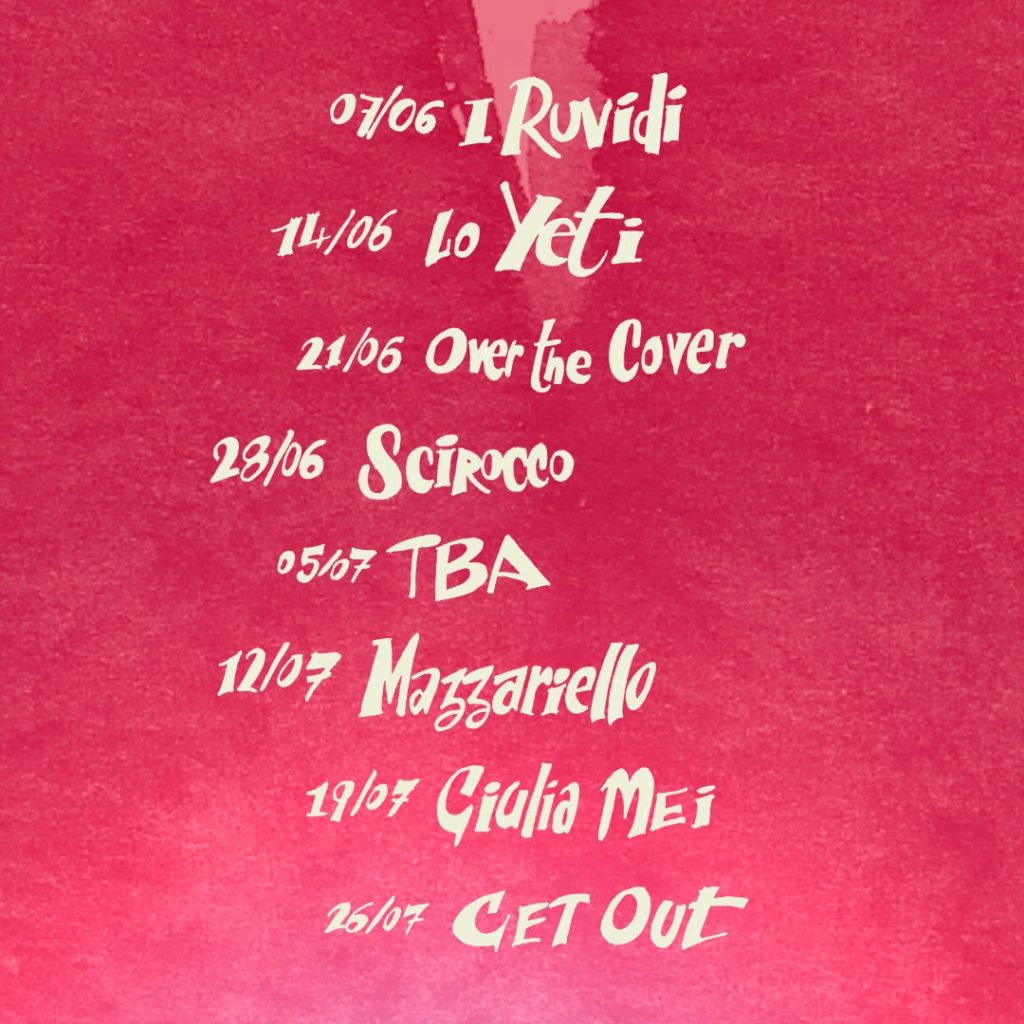 07/06 I Ruvidi
14/06 Lo Yeti
21/06 Over the Cover
28/06 Scirocco
05/07 TBA
12/07 Mazzariello
19/07 Giulia Mei
26/07 GET OUt